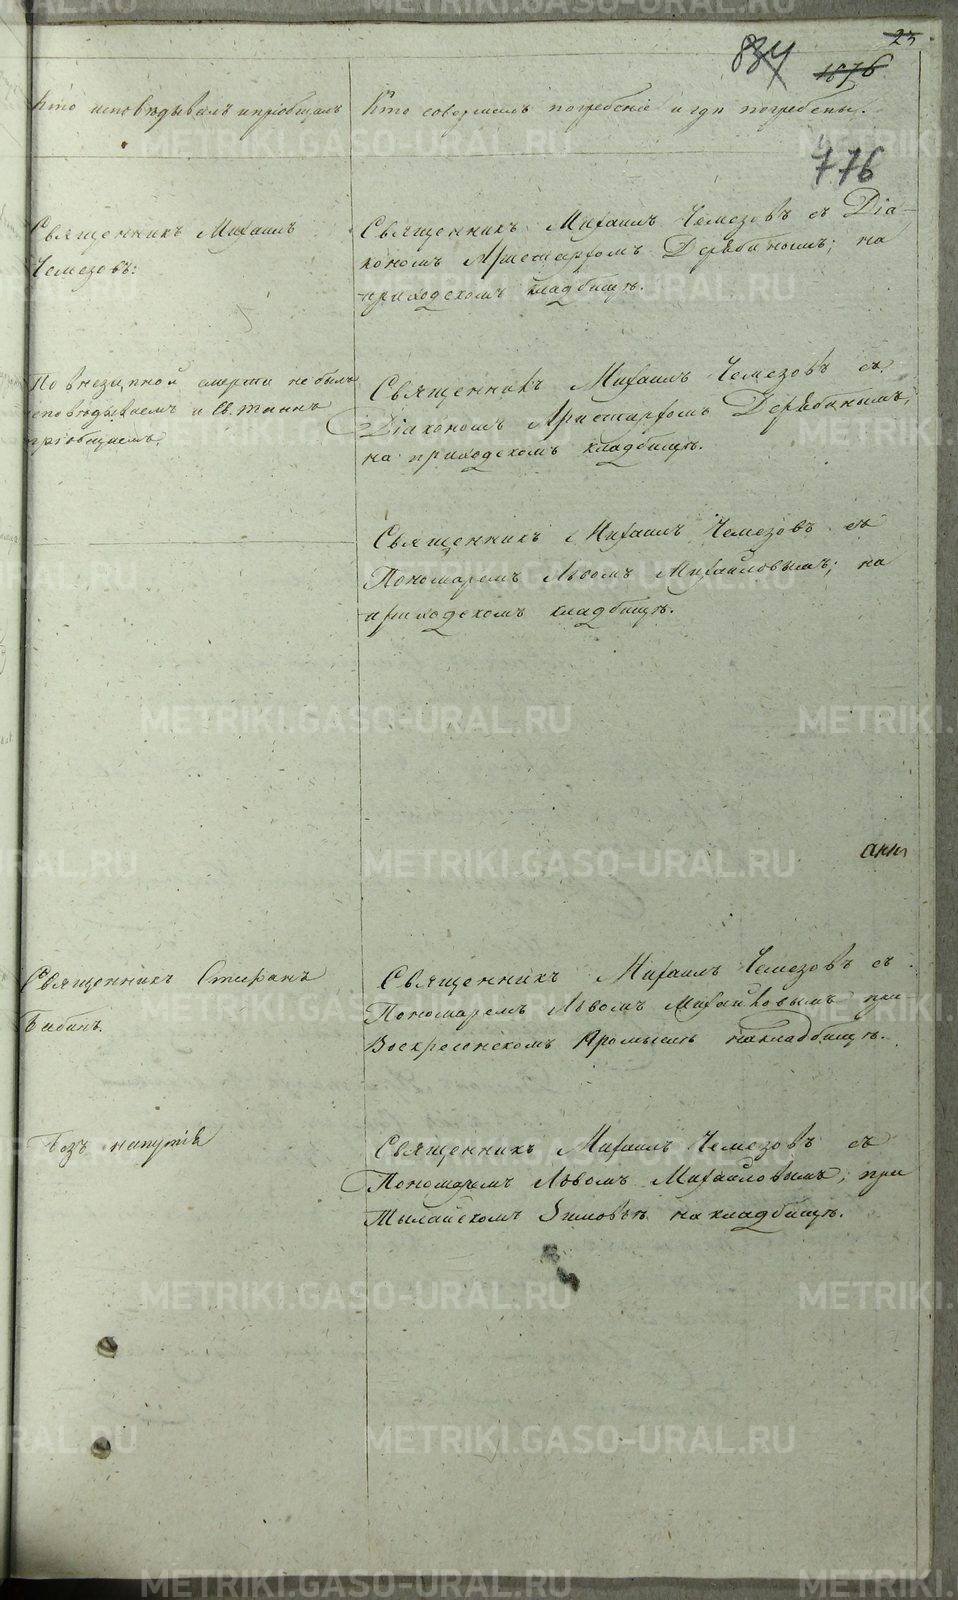 25
834
1876
Кто исповѣдывалъ и пріобщалъ
Кто совершалъ погребеніе и гдѣ погребены.
776
Священникъ Михаилъ
Чемезовъ.
Священникъ Михаилъ Чемезовъ съ Діа-
кономъ Аристархомъ Дерябинымъ; на
приходскомъ кладбищѣ.
По внезапной смерти не былъ
исповѣдываемъ и Св. таинъ
пріобщаемъ.
Священникъ Михаилъ Чемезовъ съ
Діакономъ Аристархомъ Дерябинымъ;
на приходскомъ кладбищѣ.
Священникъ Михаилъ Чемезовъ съ
Пономаремъ Львомъ Михайловымъ; на
приходскомъ кладбищѣ.
Священникъ Стефанъ
Бабинъ.
Священникъ Михаилъ Чемезовъ съ
Пономаремъ Львомъ Михайловымъ при
Воскресенскомъ Промыслѣ на кладбищѣ.
Безъ напутія
Священникъ Михаилъ Чемезовъ съ
Пономаремъ Львомъ Михайловымъ, при
Тылайскомъ Зимовьѣ на кладбищѣ.
METRIKI.GASO-URAL.RU